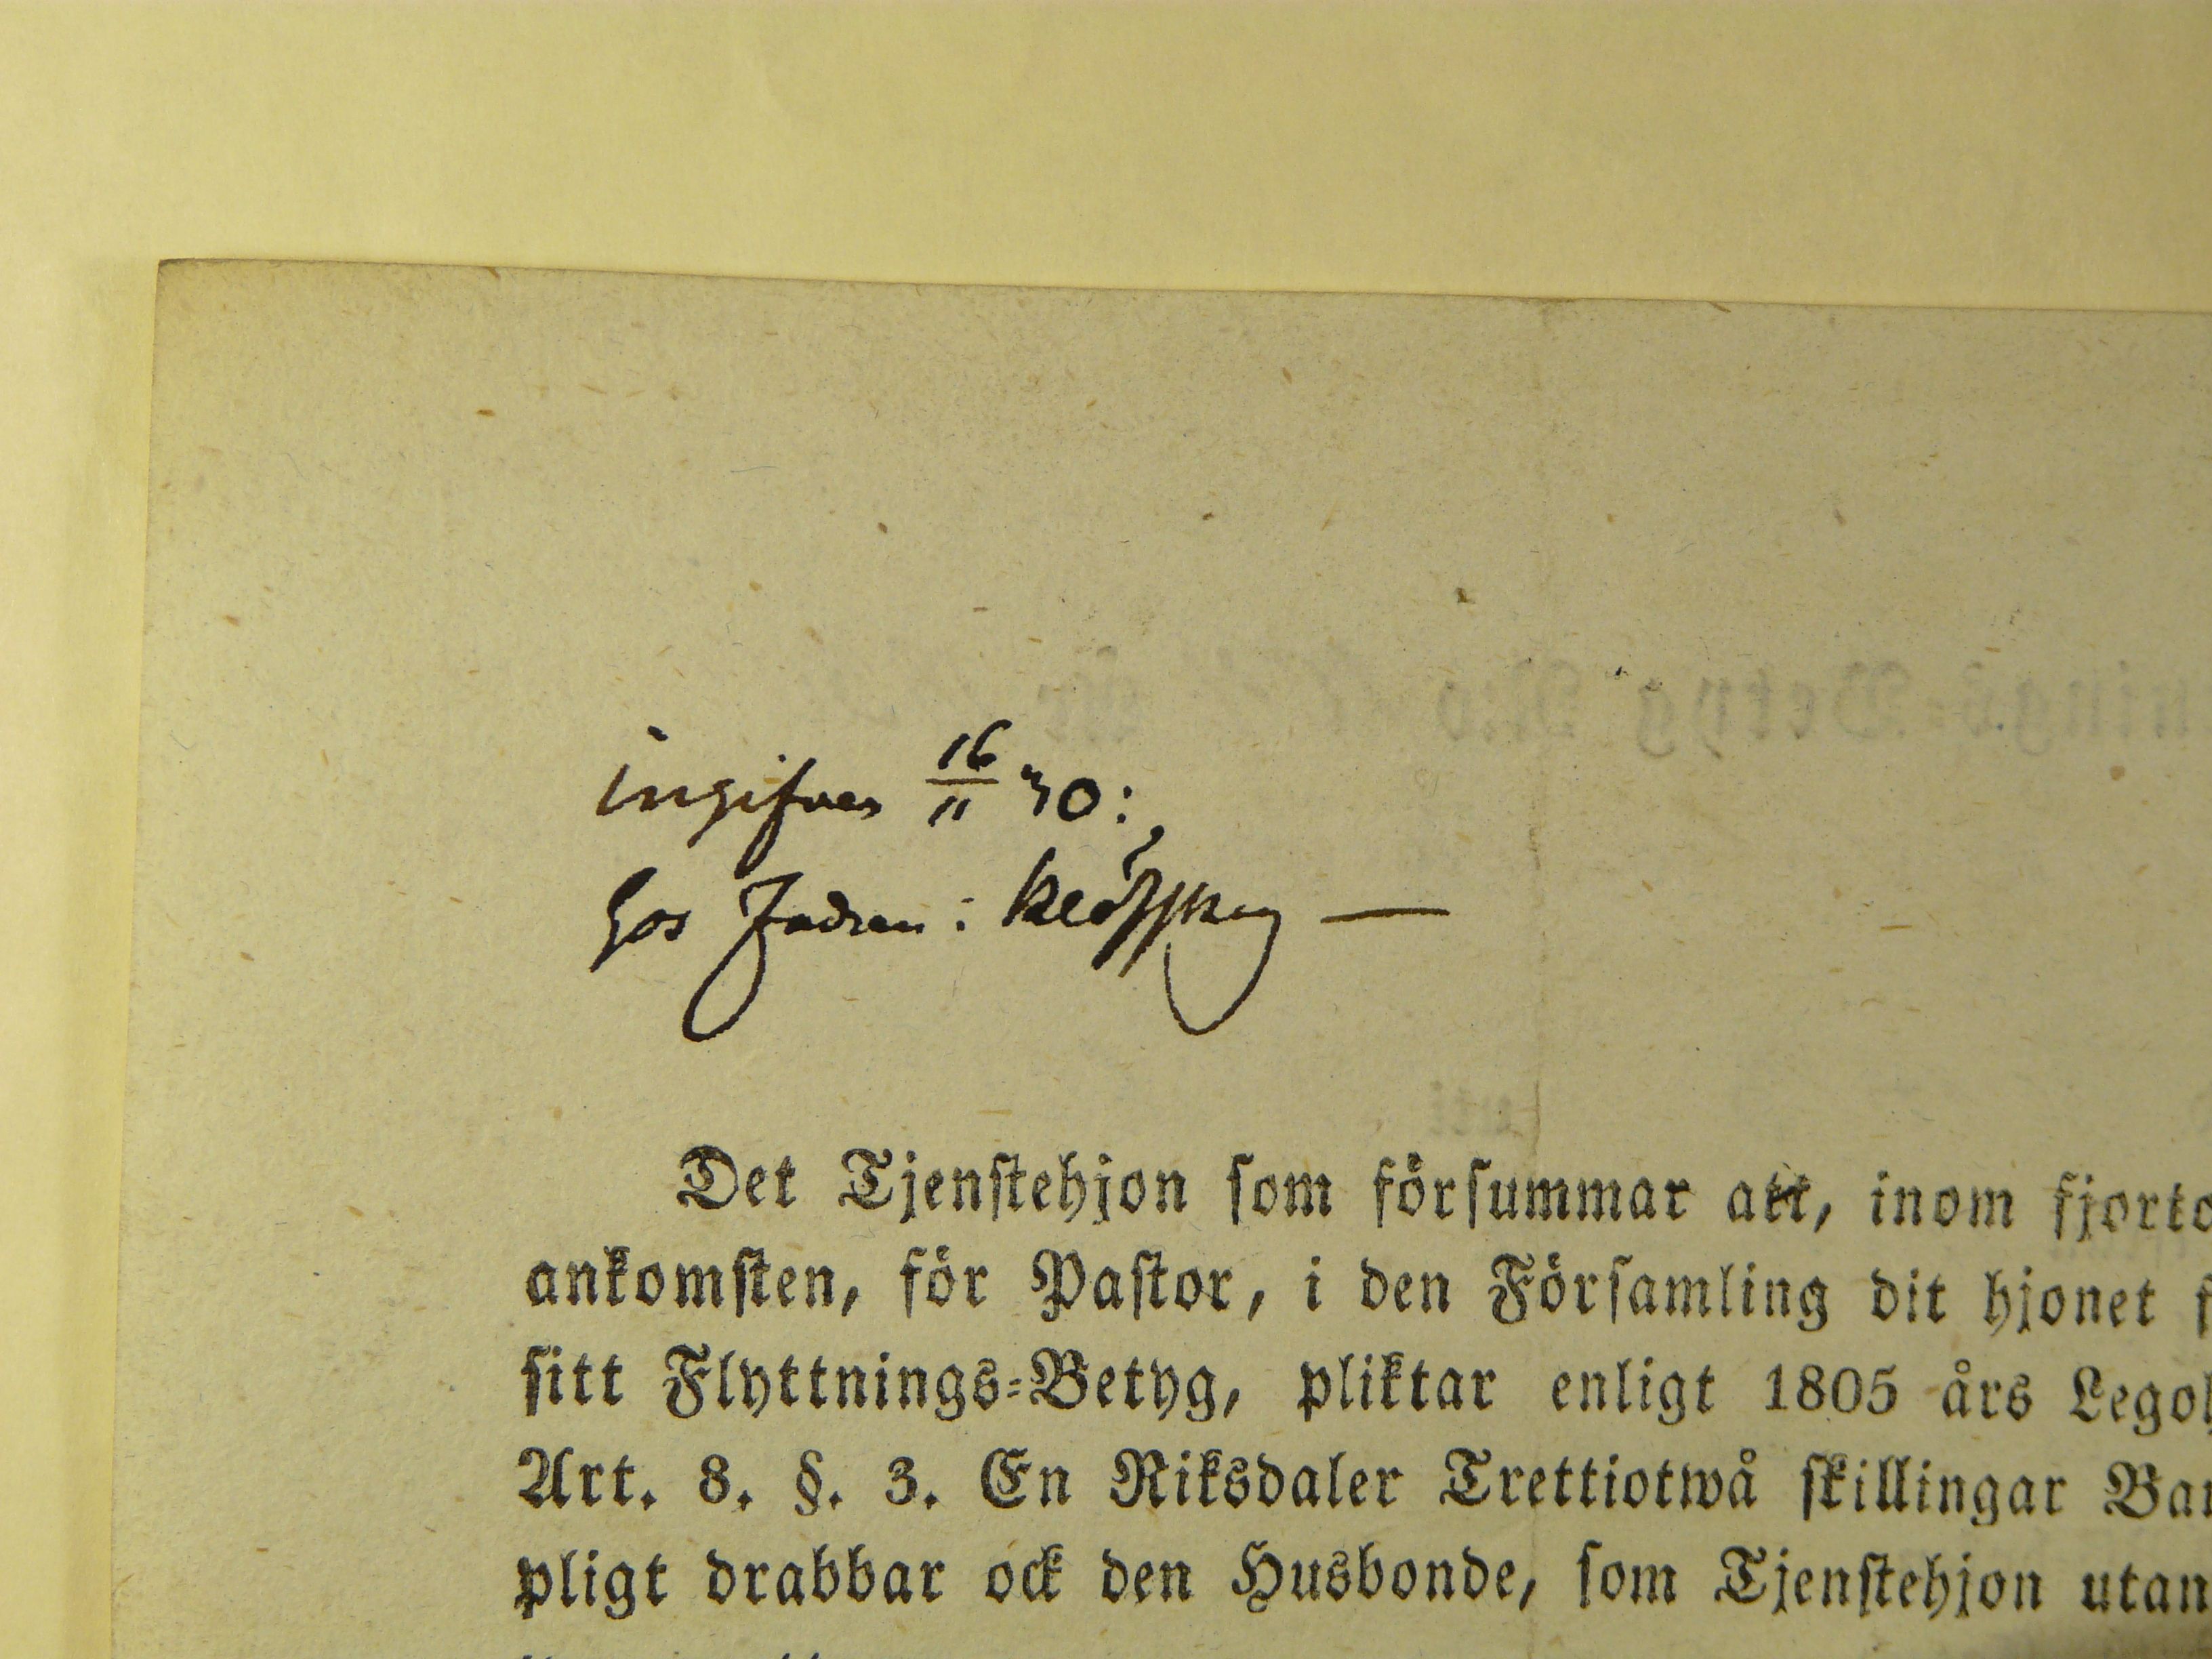 ingifves 16/11 40:
hos Fadren:
Det Tjenstehjon som försummar att, inom fjorto
ankomsten, för Pastor, i den Församling dit hjonet f
sitt Flyttnings-Betyg, pliktar enligt 1805 års Lego
Art. 8. §. 3. En Riksdaler Trettiotwå skillingar Ban
pligt drabbar ock den Husbonde, som Tjenstehjon utan